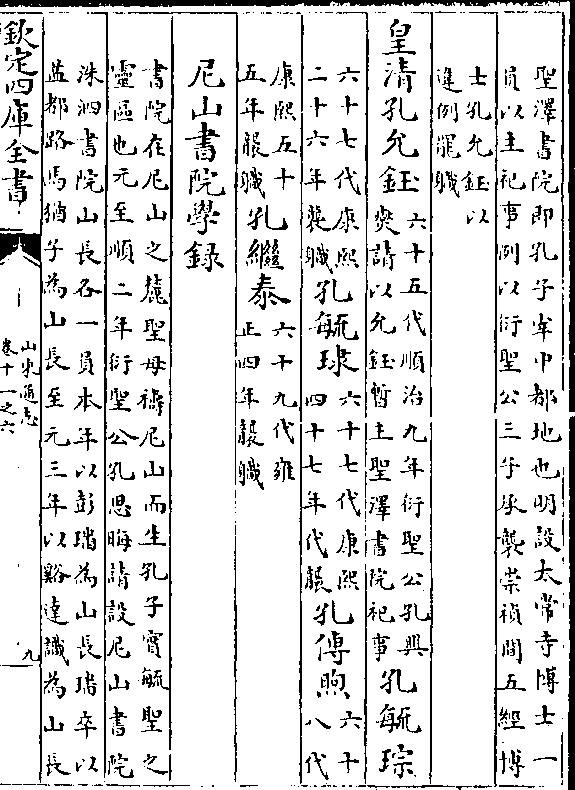 聖澤書院即孔子宰中都地也明設太常寺博士一
員以主祀事例以衍聖公三子承襲崇禎間五經博
士孔允鈺以
違例罷職
皇清孔允鈺六十五代順治九年衍聖公孔興
燮請以允鈺暫主聖澤書院祀事孔毓琮
六十七代康熙
二十六年襲職孔毓琭六十七代康熙
四十七年代襲孔傳煦六十
八代
康熙五十
五年襲職孔繼泰六十九代雍
正四年襲職
尼山書院學錄
書院在尼山之麓聖母禱尼山而生孔子實毓聖之
靈區也元至順二年衍聖公孔思晦請設尼山書院
洙泗書院山長各一員本年以彭璠為山長璠卒以
益都路馬猶子為山長至元三年以谿達識為山長
欽定四庫全書
山東通志
卷十一之六
九